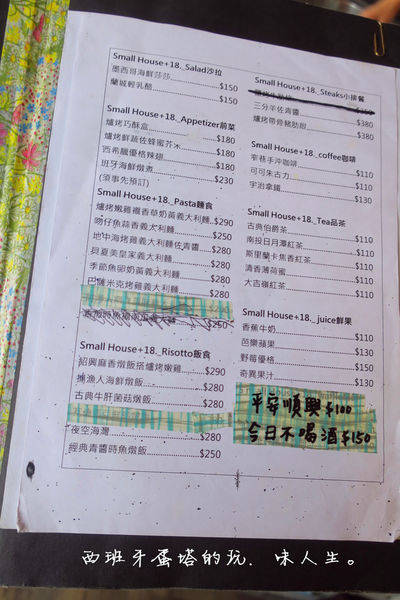 Small House+18._Salad沙拉
墨西哥海鮮莎莎 $150
蘭城輕乳酪 $150
Small House+18._Appetizer前菜
爐烤巧酥盒 $180
爐烤鮮蔬佐蜂蜜芥末 $180
西希臘優格辣翅 $180
班牙海鮮燉煮 $230
(須事先預訂)
Small House+18._Pasta麵食
爐烤嫩雞襯香草奶黃義大利麵 $290
吻仔魚蒜香義大利麵 $250
地中海烤雞義大利麵佐青醬 $280
貝夏美皇家義大利麵 $280
季節魚卵奶黃義大利麵 $280
巴薩米克烤雞義大利麵 $280
$250
Small House+18._Risotto飯食
紹興麻香燉飯搭爐烤嫩雞 $290
擒漁人海鮮燉飯 $280
古典牛肝菌菇燉飯 $280
夜空海灣 $280
經典青醬時魚燉飯 $250
Small House+18._Steaks小排餐
$350
三分羊佐青醬 $380
爐烤帶骨豬肋眼 $380
Small House+18._coffee咖啡
窄巷手沖咖啡 $110
可可朱古力 $110
宇治拿鐵 $130
Small House+18._Tea品茶
古典伯爵茶 $110
南投日月潭紅茶 $110
斯里蘭卡焦香紅茶 $110
清香薄荷蜜 $110
大吉嶺紅茶 $110
Small House+18._juice鮮果
香蕉牛奶 $110
芭樂蘋果 $130
野莓優格 $150
奇異果汁 $130
平安順興$100
今日不喝酒$150
西班牙蛋塔的玩．味人生。